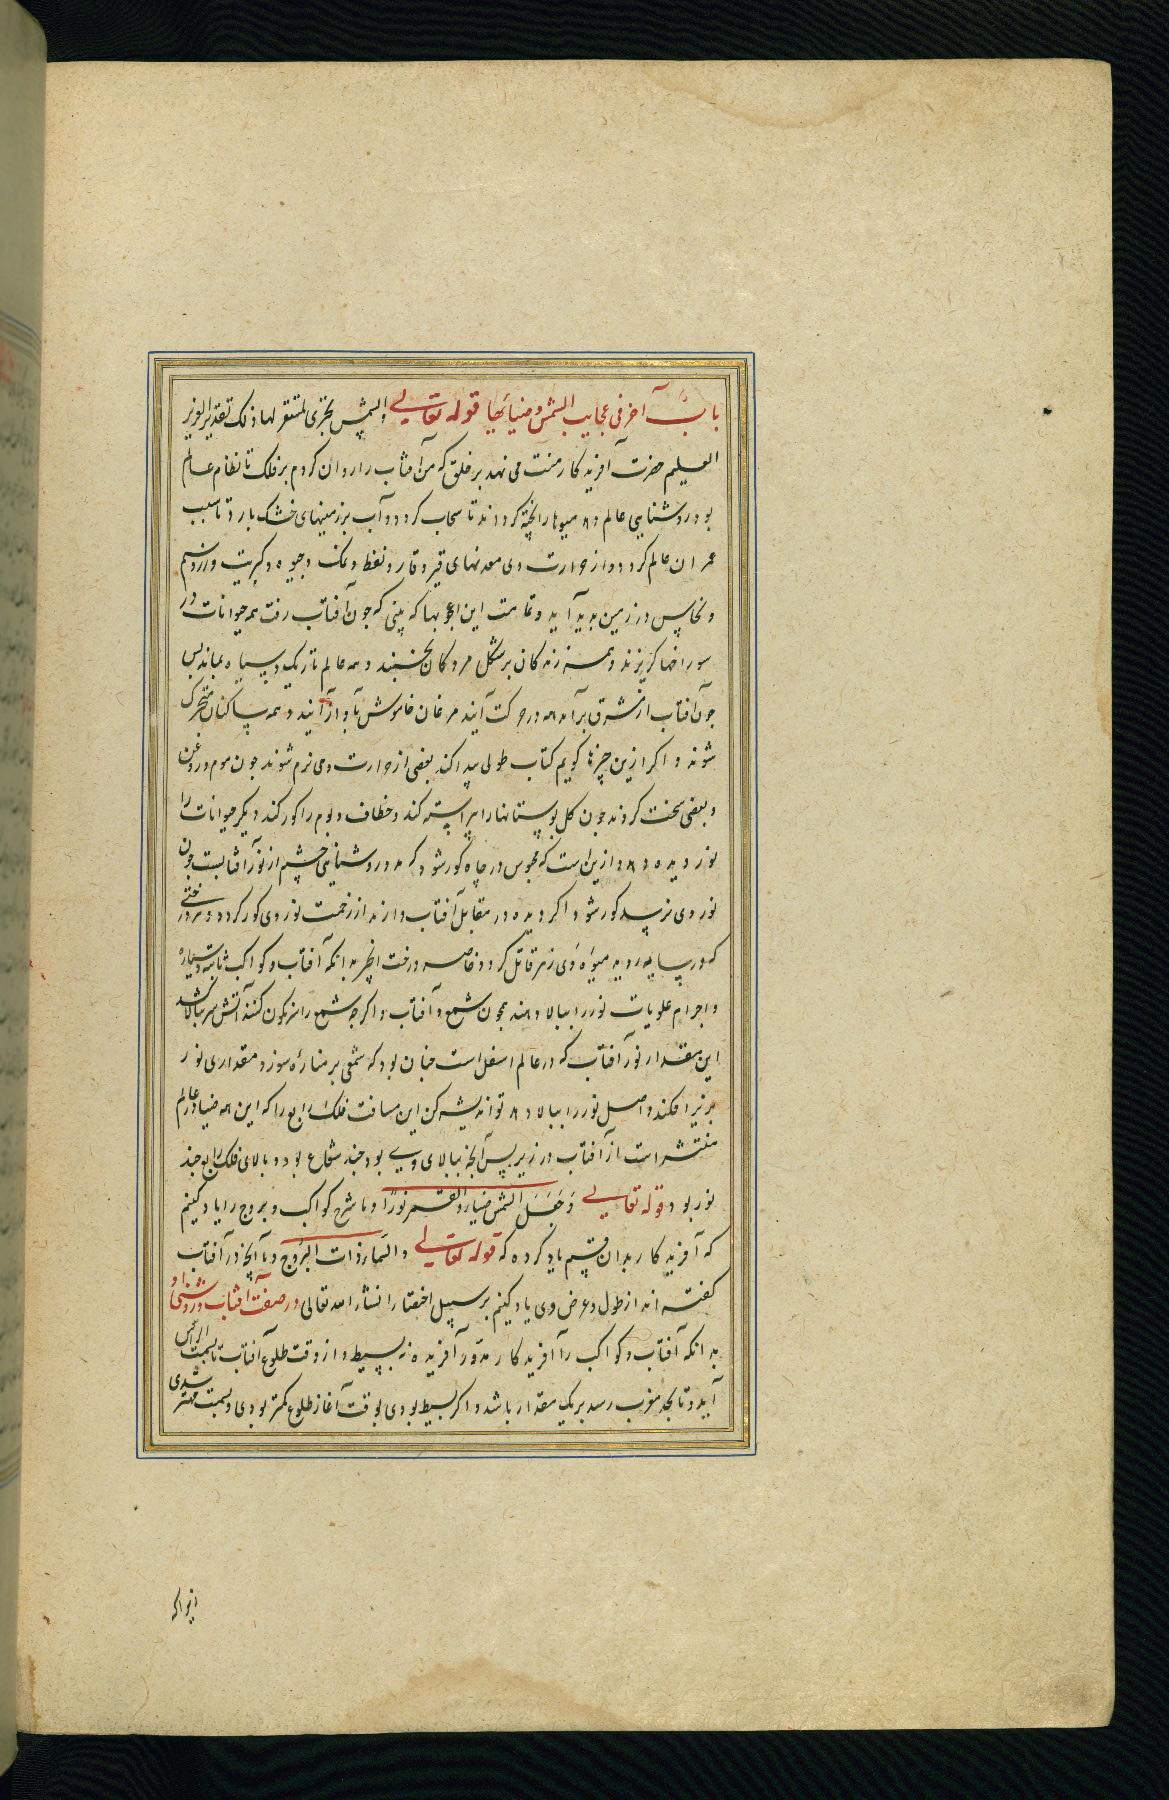 باب آخر فی عجایب الشمس و ضیائها قوله تعالی والشمس تجری لمستقر لها ذلک تقدیر العزیز
العلیم حضرت آفریدکار منت می نهد بر خلق که من آفتاب را روان کردم بر فلک تا نظام عالم
بود و روشنایی عالم دهد میوها را پخته کرداند تا سحاب کردد و آب بر زمینهای خشک بارد تا سبب
عمران عالم کردد و از حرارت وی معدنهای قیر و قار و نفط و نمک و جیوه و کبریت و زر و سیم
و نحاس در زمین بدید آید و تمامت این اعجوبها که بینی که جون آفتاب رفت همه حیوانات در
سوراخها کریزند و همه زندکان بر شکل مردکان بخسبند و همه عالم تاریک و سیاه بماند پس
جون آفتاب از مشرق برآمد همه در حرکت آیند مرغان خاموش بآواز آیند و همه ساکنان متحرک
شوند و اکر ازین چیزها کویم کتاب طولی پیدا کند بعضی از حرارت وی نرم شوند جون موم و روغن
و بعضی سخت کردند جون کل بوستانها را پیراسته کند و خطاف و بوم را کور کند دیکر حیوانات را
نور دیده دهد و ازین است که محبوس در چاه کور شود که مدد روشنایی چشم از نور آفتابست جون
نور وی نرسد کور شود اکر دیده در مقابل آفتاب دارند از زحمت نور وی کور کردد و هر درختی
که در سایه روید میوه وی زهر قاتل کردد خاصه درخت انجیر بدانکه آفتاب و کواکب ثابته و سیاره
و اجرام علویات نور را ببالا دهند همجون شمع و آفتاب و اکرچه شمع را سرنکون کنند آتش سر ببالا کشد
این مقدار نور آفتاب که در عالم اسفل است چنان بود که شمعی بر مناره سوزد مقداری نور
برزیر افکند و اصل نور را ببالا دهد تو اندیشه کن این مسافت فلک رابع را که این همه ضیا در عالم
منتشر است از آفتاب در زیر پس آنچه ببالای وی بود چند شعاع بود و بالای فلک رابع چند
نور بود قوله تعالی وجعل الشمس ضیاء والقمر نورا و ما شرح کواکب و بروج را یاد کنیم
که آفریدکار بدان قسم یاد کرده که قوله تعالی والسماء ذات البروج و ما آنچه در آفتاب
کفته اند از طول و عرض وی یاد کنیم بر سبیل اختصار انشاء الله تعالی در صفت آفتاب و روشنی او
بدانکه آفتاب و کواکب را آفریدکار مدور آفریده نه بسیط و از وقت طلوع آفتاب تا بسمت الراس
آید و تا بحد مغرب رسد بر یک مقدار باشد و اکر بسیط بودی بوقت آغاز طلوع کمتر بودی و بسمت مهتر شدی